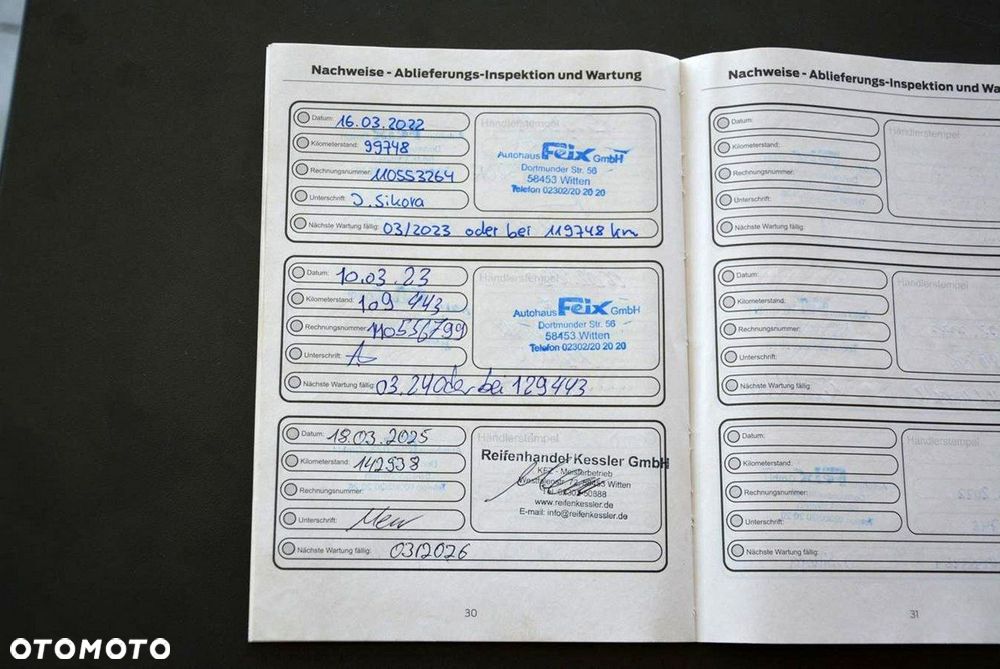 Nachweise - Ablieferungs-Inspektion und Wartung
Datum: 16.03.2022
Kilometerstand: 99748
Rechnungsnummer: 110553264
Unterschrift: J. Sikora
Händlerstempel
Autohaus Feix GmbH
Dortmunder Str. 56
58453 Witten
Telefon 02302/20 20 20
Nächste Wartung fällig: 03/2023 oder bei 119748 km
Datum: 10.03.23
Kilometerstand: 109 443
Rechnungsnummer: 110556799
Unterschrift:
Händlerstempel
Autohaus Feix GmbH
Dortmunder Str. 56
58453 Witten
Telefon 02302/20 20 20
Nächste Wartung fällig: 03.24 oder bei 129443
Datum: 18.03.2025
Kilometerstand: 142538
Rechnungsnummer:
Unterschrift:
Händlerstempel
Reifenhandel Kessler GmbH
KFZ - Meisterbetrieb
Witten
www.reifenkessler.de
E-mail: info@reifenkessler.de
Nächste Wartung fällig: 03/2026
30
Nachweise - Ablieferungs-Inspektion und Wa
Datum:
Kilometerstand:
Rechnungsnummer:
Unterschrift:
Händlerstempel
Nächste Wartung fällig:
Datum:
Kilometerstand:
Rechnungsnummer:
Unterschrift:
Händlerstempel
Nächste Wartung fällig:
Datum:
Kilometerstand:
Rechnungsnummer:
Unterschrift:
Händlerstempel
Nächste Wartung fällig:
31
OTOMOTO